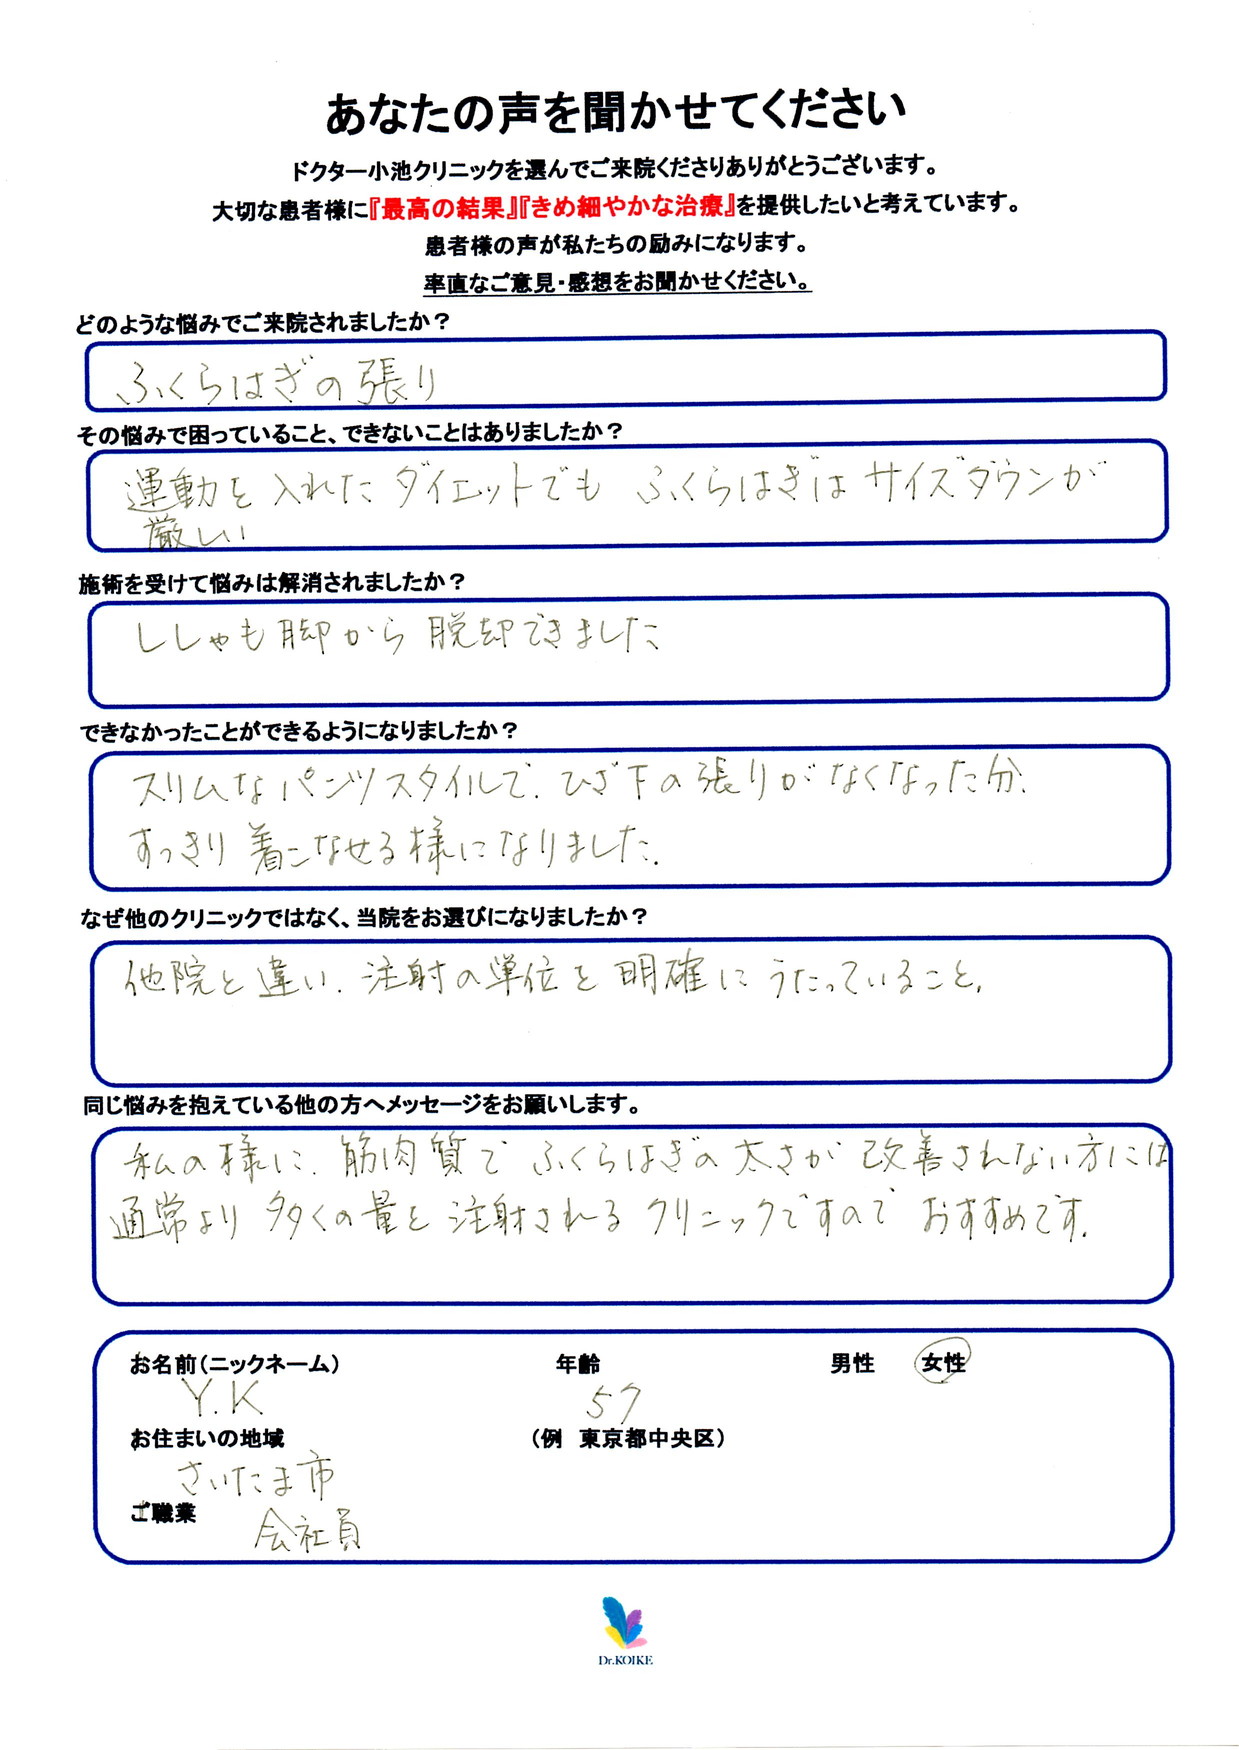 あなたの声を聞かせてください
ドクター小池クリニックを選んでご来院くださりありがとうございます。
大切な患者様に『最高の結果』『きめ細やかな治療』を提供したいと考えています。
患者様の声が私たちの励みになります。
率直なご意見・感想をお聞かせください。
どのような悩みでご来院されましたか？
ふくらはぎの張り
その悩みで困っていること、できないことはありましたか？
運動を入れたダイエットでも ふくらはぎはサイズダウンが
厳しい
施術を受けて悩みは解消されましたか？
ししゃも脚から脱却できました
できなかったことができるようになりましたか？
スリムなパンツスタイルで、ひざ下の張りがなくなった分、
すっきり着こなせる様になりました。
なぜ他のクリニックではなく、当院をお選びになりましたか？
他院と違い、注射の単位を明確にうたっていること。
同じ悩みを抱えている他の方へメッセージをお願いします。
私の様に、筋肉質で ふくらはぎの太さが改善されない方には
通常より多くの量を注射されるクリニックですので おすすめです。
お名前（ニックネーム） 年齢 男性 女性
Y.K 57
お住まいの地域 （例 東京都中央区）
さいたま市
ご職業
会社員
Dr.KOIKE